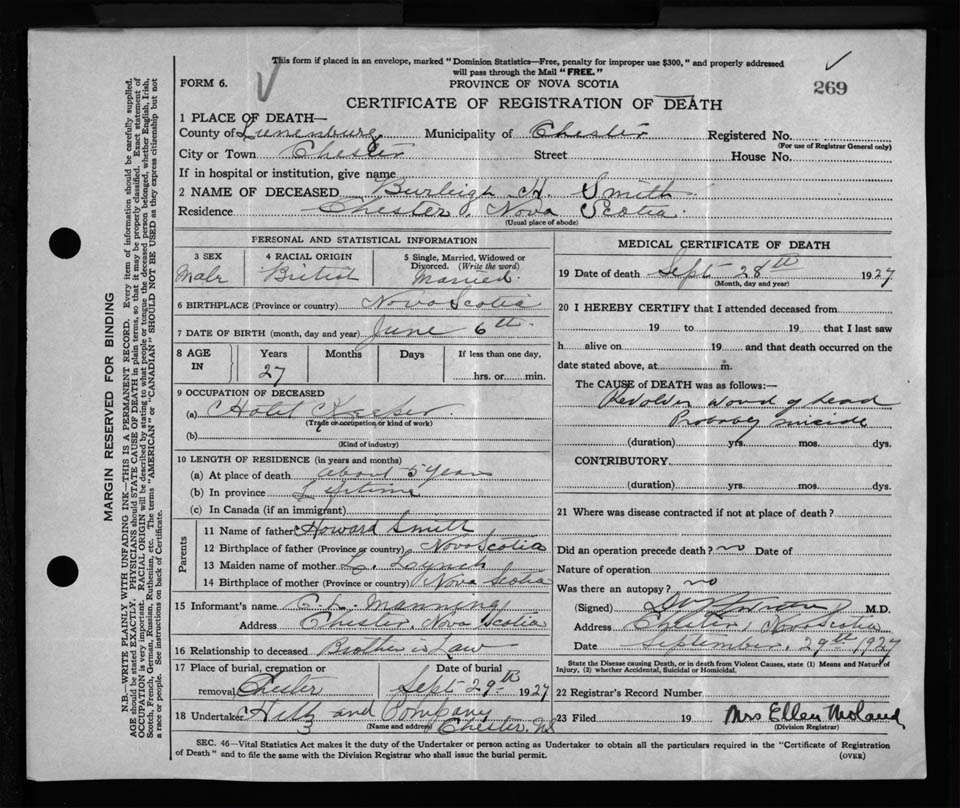 This form if placed in an envelope, marked "Dominion Statistics—Free, penalty for improper use $300," and properly addressed
will pass through the Mail "FREE."
FORM 6.
PROVINCE OF NOVA SCOTIA
269
CERTIFICATE OF REGISTRATION OF DEATH
1 PLACE OF DEATH—
County of Lunenburg Municipality of Chester Registered No.
(For use of Registrar General only)
City or Town Chester Street House No.
If in hospital or institution, give name
2 NAME OF DECEASED Burleigh H. Smith
Residence Chester, Nova Scotia.
(Usual place of abode)
PERSONAL AND STATISTICAL INFORMATION
3 SEX 4 RACIAL ORIGIN 5 Single, Married, Widowed or
Divorced. (Write the word)
Male British Married
6 BIRTHPLACE (Province or country) Nova Scotia
7 DATE OF BIRTH (month, day and year) June 6th
8 AGE IN Years Months Days If less than one day,
27 hrs. or min.
9 OCCUPATION OF DECEASED
(a) Hotel Keeper
(Trade or occupation or kind of work)
(b)
(Kind of industry)
10 LENGTH OF RESIDENCE (in years and months)
(a) At place of death about 5 years
(b) In province
(c) In Canada (if an immigrant)
Parents
11 Name of father Howard Smith
12 Birthplace of father (Province or country) Nova Scotia
13 Maiden name of mother L. Lynch
14 Birthplace of mother (Province or country) Nova Scotia
15 Informant's name C. L. Manning
Address Chester, Nova Scotia
16 Relationship to deceased Brother in Law
17 Place of burial, cremation or Date of burial
removal Chester Sept 29th 1927
18 Undertaker Hiltz and Company
(Name and address) Chester. NS
3
MEDICAL CERTIFICATE OF DEATH
19 Date of death Sept 28th 1927
(Month, day and year)
20 I HEREBY CERTIFY that I attended deceased from
19 to 19 that I last saw
h alive on 19 and that death occurred on the
date stated above, at m.
The CAUSE of DEATH was as follows:—
Revolver wound of head
Probably suicide
(duration) yrs. mos. dys.
CONTRIBUTORY.
(duration) yrs. mos. dys.
21 Where was disease contracted if not at place of death?
Did an operation precede death? no Date of
Nature of operation
Was there an autopsy? no
(Signed) M.D.
Address Chester, Nova Scotia
Date September, 29th 1927
State the Disease causing Death, or in death from Violent Causes, state (1) Means and Nature of
Injury, (2) whether Accidental, Suicidal or Homicidal.
22 Registrar's Record Number
23 Filed 19 Mrs Ellen Moland
(Division Registrar)
SEC. 46—Vital Statistics Act makes it the duty of the Undertaker or person acting as Undertaker to obtain all the particulars required in the "Certificate of Registration
of Death" and to file the same with the Division Registrar who shall issue the burial permit.
(OVER)
MARGIN RESERVED FOR BINDING
N.B.—WRITE PLAINLY WITH UNFADING INK—THIS IS A PERMANENT RECORD. Every item of information should be carefully supplied.
AGE should be stated EXACTLY. PHYSICIANS should STATE CAUSE OF DEATH in plain terms, so that it may be properly classified. Exact statement of
OCCUPATION is very important. RACIAL ORIGIN will be described by stating to what people or tongue the deceased person belonged, whether English, Irish,
Scotch, French, German, Russian, Ruthenian, etc. The terms "AMERICAN" or "CANADIAN" SHOULD NOT BE USED as they express citizenship but not
a race or people. See instructions on back of Certificate.